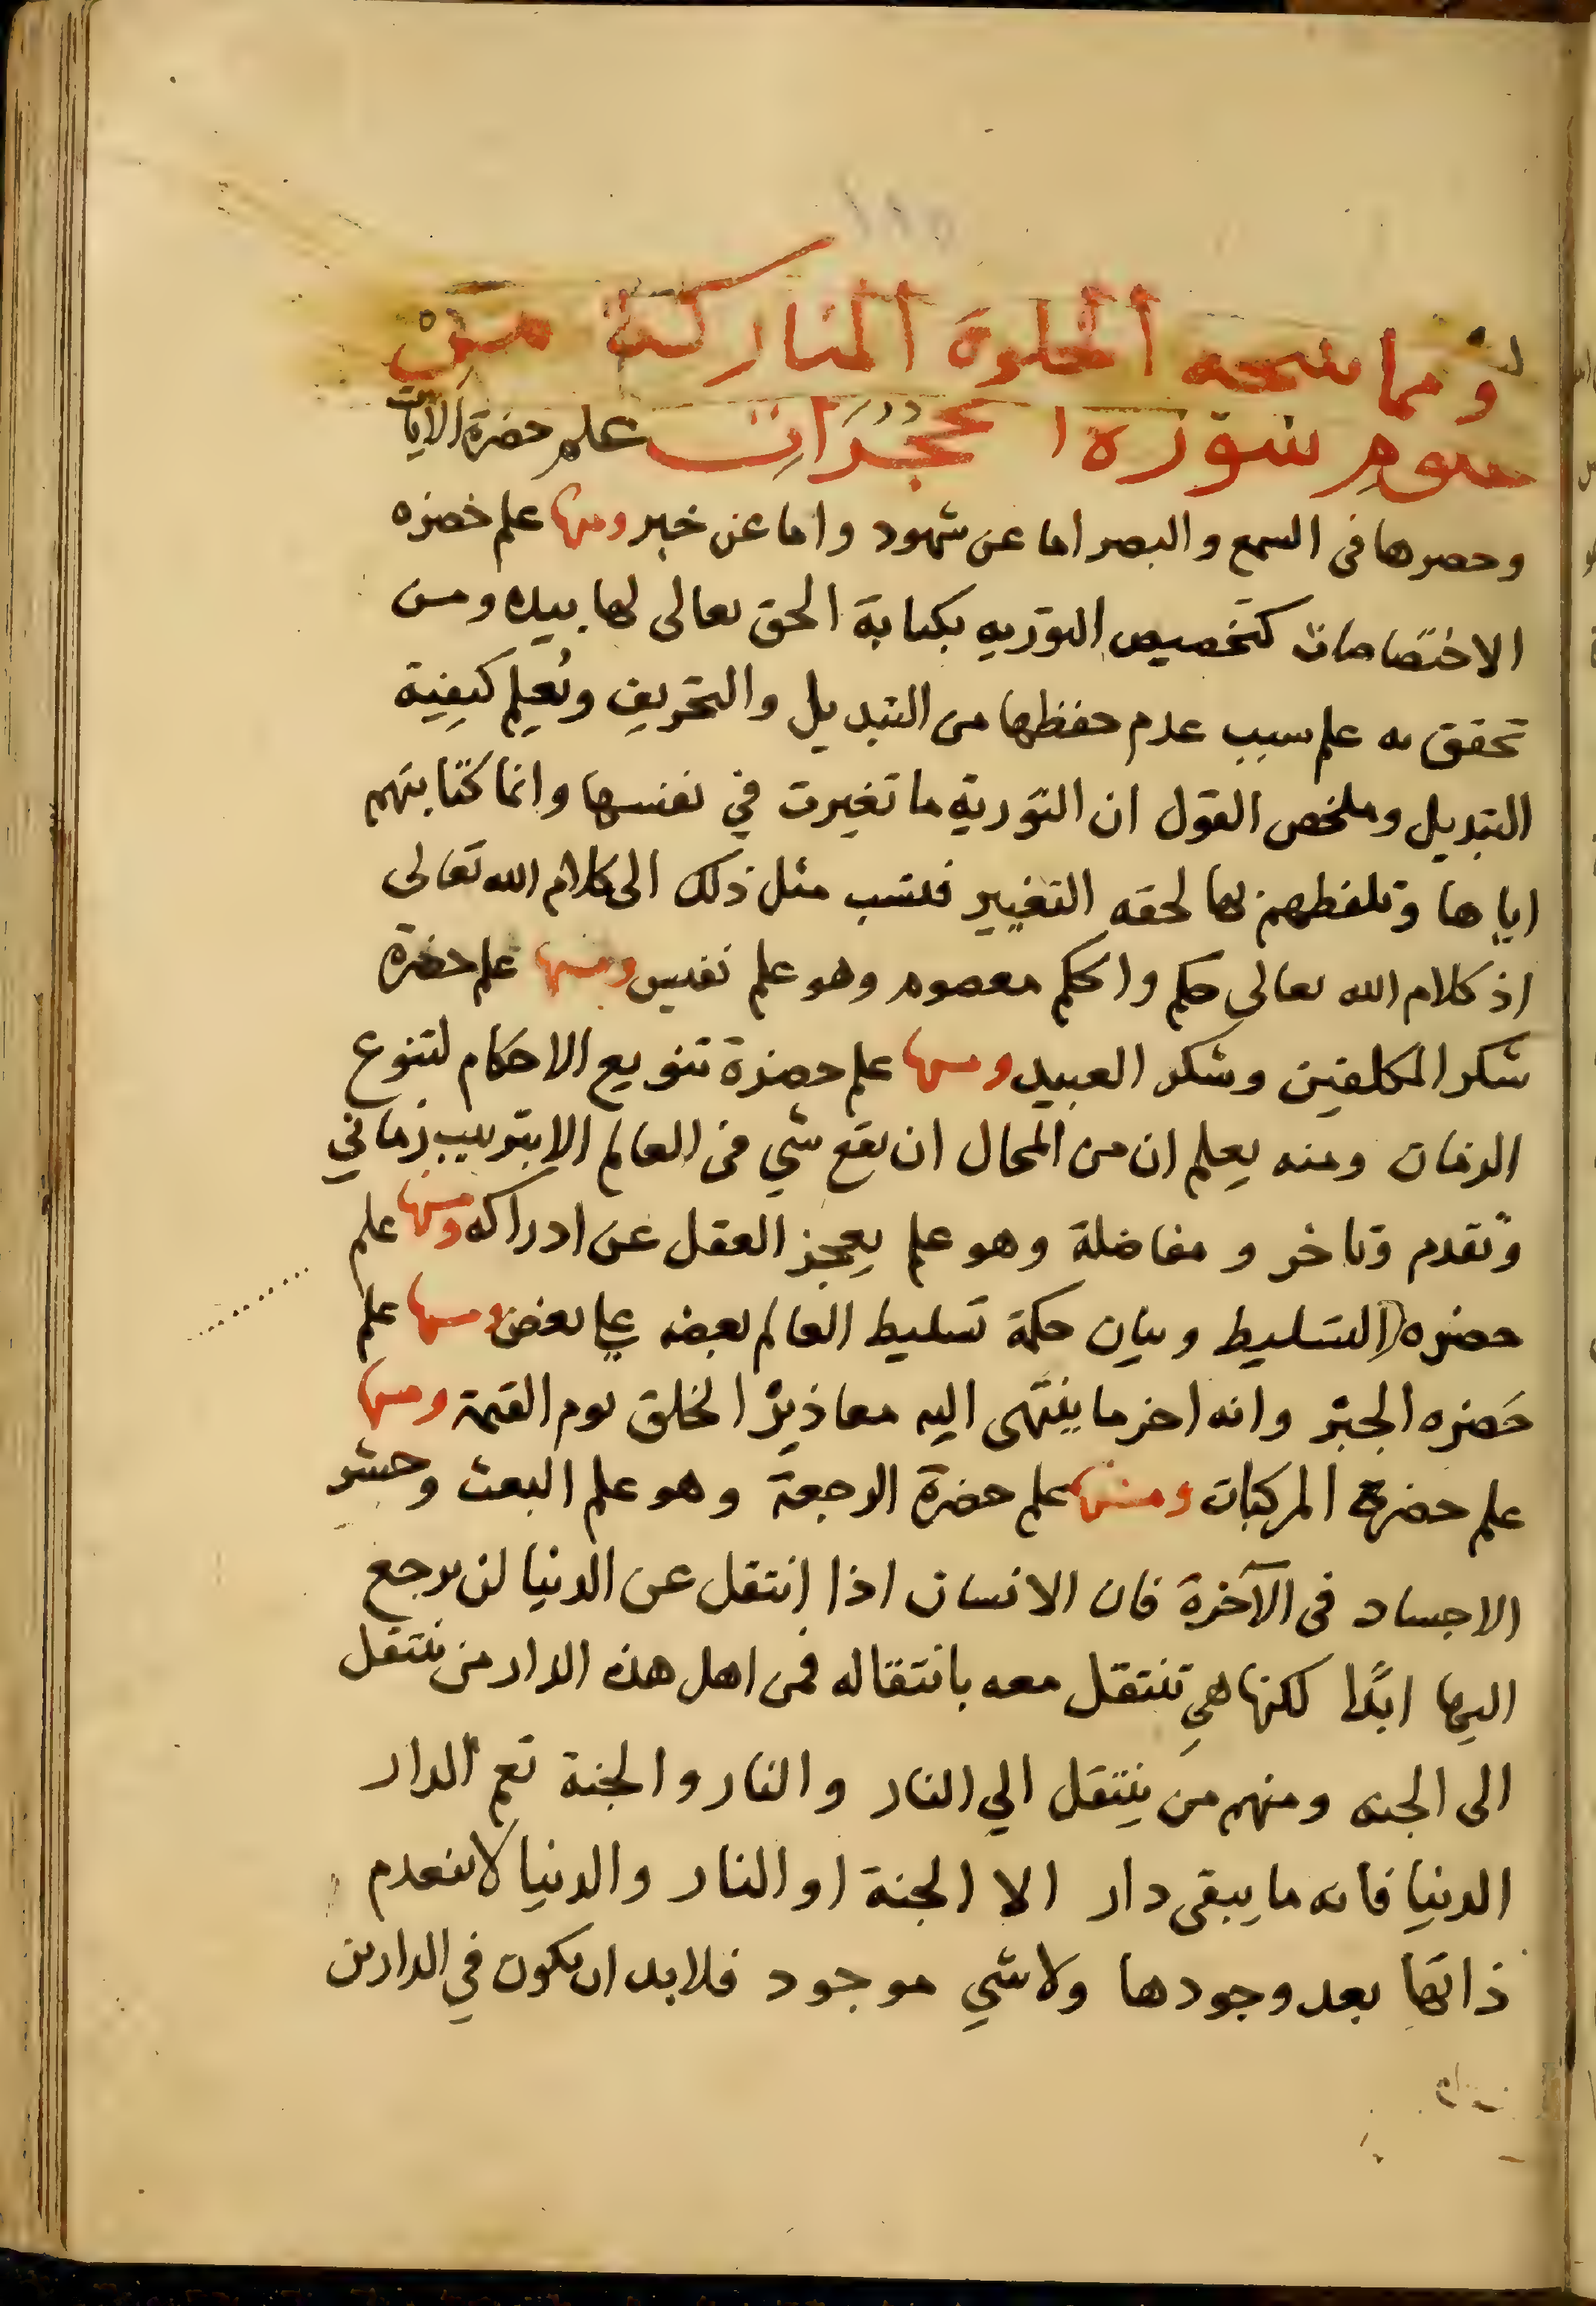 ومما نتجه الخلوة المباركة من
علوم سورة الحجرات علم حضرة الايات
وحصرها فى السمع والبصر اما عن شهود واما عن خبر ومنها علم حضره
الاختصاصات كتخصيص التوريه بكتابة الحق تعالى لها بيده ومن
تحقق به علم سبب عدم حفظها من التبديل والتحريف ونعلم كيفية
التبديل وملخص القول ان التورية ما تغيرت في نفسها وانما كتابتهم
اياها وتلفظهم بها لحقه التغيير فنسب مثل ذلك الى كلام الله تعالى
اذ كلام الله تعالى حكم والحكم معصوم وهو علم نفيس ومنها علم حضرة
شكر المكلفين وشكر العبيد ومنها علم حضرة تنويع الاحكام لتنوع
الزمان ومنه يعلم ان من المحال ان يقع شي فى العالم الا بترتيب زماني
وتقدم وتاخر ومفاضلة وهو علم يعجز العقل عن ادراكه ومنها علم
حضره التسليط وبيان حكمة تسليط العالم بعضه علي بعض ومنها علم
حضره الجبر وانه اخر ما ينتهى اليه معاذير الخلق يوم القيمة ومنها
علم حضرة المركبات ومنها علم حضرة الرجعة وهو علم البعث وحشر
الاجساد فى الآخرة فان الانسان اذا انتقل عن الدنيا لن يرجع
اليها ابدًا لكنها هي تنتقل معه بانتقاله فمن اهل هذه الدار من ينتقل
الى الجنه ومنهم من ينتقل الي النار والنار والجنة تعم الدار
الدنيا فانه ما يبقى دار الا الجنة او النار والدنيا لا تنعدم
ذاتها بعد وجودها ولا شي موجود فلابد ان يكون في الدارين